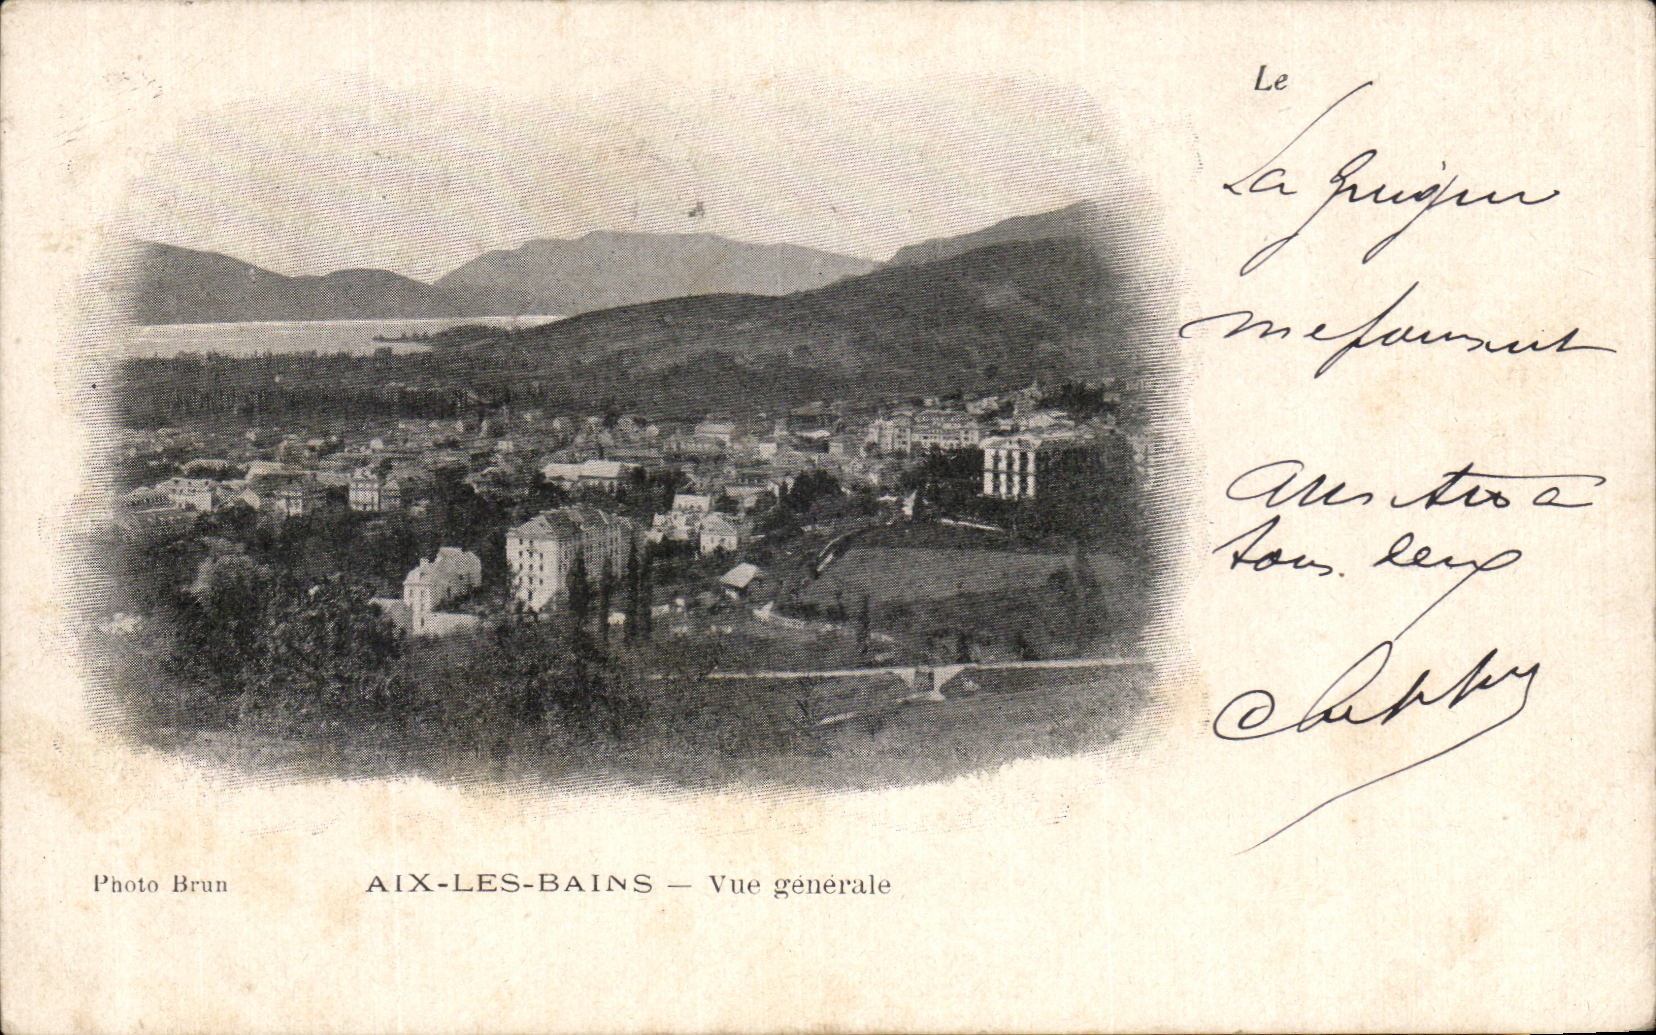 Le
La guigne
me poursuit
Amitiés à
tous deux
Photo Brun
AIX-LES-BAINS — Vue générale